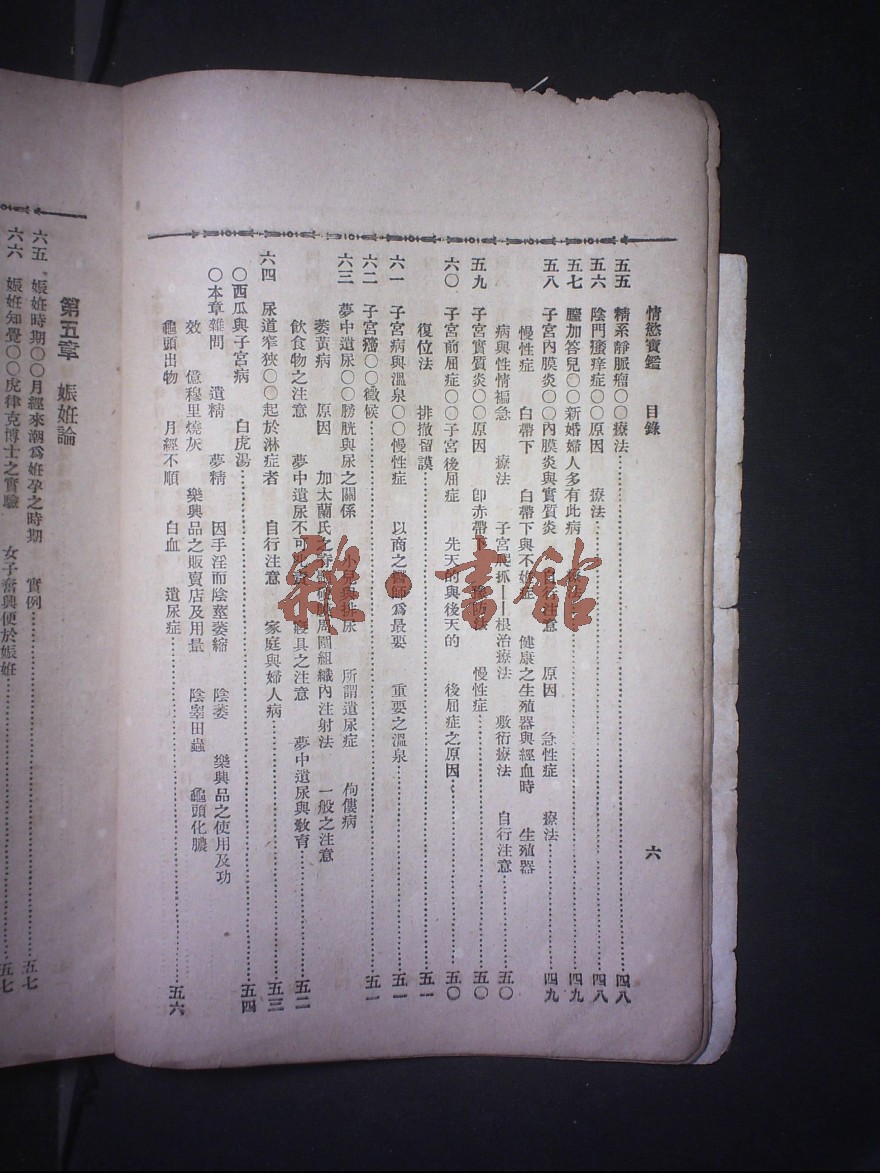 情慾寶鑑 目錄 六
五五 精系靜脈瘤〇〇療法 四八
五六 陰門瘙痒症〇〇原因 療法 四八
五七 膣加答兒〇〇新婚婦人多有此病 四九
五八 子宮內膜炎〇〇內膜炎與實質炎 自行注意 原因 急性症 療法 四九
慢性症 白帶下 白帶下與不妊症 健康之生殖器與經血時 生殖器
病與性情褊急 療法 子宮爬抓—根治療法 敷衍療法 自行注意 五〇
五九 子宮實質炎〇〇原因 卽赤帶下 豫防法 慢性症 五〇
六〇 子宮前屈症〇〇子宮後屈症 先天的與後天的 後屈症之原因 五〇
復位法 排撒留謨 五一
六一 子宮病與溫泉〇〇慢性症 以商之醫師爲最要 重要之溫泉 五一
六二 子宮癌〇〇徵候 五一
六三 夢中遺尿〇〇膀胱與尿之關係 小兒與排尿 所謂遺尿症 佝僂病
萎黃病 原因 加太蘭氏之 周圍組織內注射法 一般之注意
飮食物之注意 夢中遺尿不可 寢具之注意 夢中遺尿與敎育 五二
六四 尿道窄狹〇〇起於淋症者 自行注意 家庭與婦人病 五三
〇西瓜與子宮病 白虎湯 五四
〇本章雜問 遺精 夢精 因手淫而陰莖萎縮 陰萎 樂興品之使用及功
效 億穆里燒灰 樂興品之販賣店及用量 陰睾田蟲 龜頭化膿
龜頭出物 月經不順 白血 遺尿症 五六
第五章 娠姙論
六五 娠姙時期〇〇月經來潮爲姙孕之時期 實例 五七
六六 娠姙知覺〇〇虎律克博士之實驗 女子奮興便於娠姙 五七
雜·書館